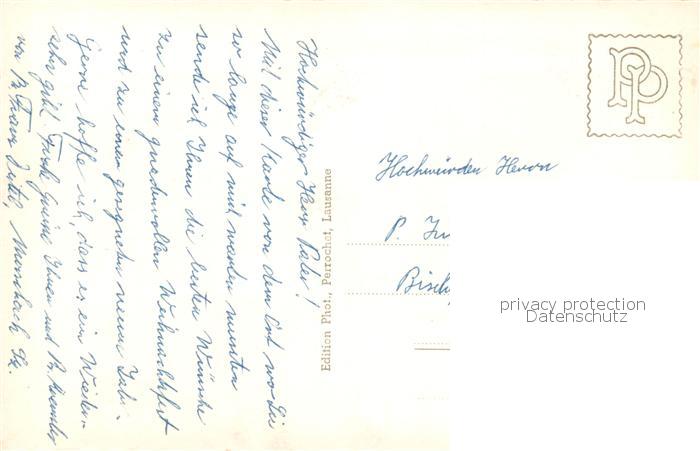 Hochwürdiger Herr Pater!
Mit dieser Karte von dem Ort wo Sie
so lange auf mich warten mussten
sende ich Ihnen die besten Wünsche
zu einem gnadenvollen Weihnachtsfest
und zu einem gesegneten neuen Jahr.
Gerne hoffe ich, dass es ein Wieder-
sehn gibt. Grüsse Ihnen und
von Br. Franz
Edition Phot., Perrochet, Lausanne
PP
Hochwürden Herrn
P.
Bisch
privacy protection
Datenschutz